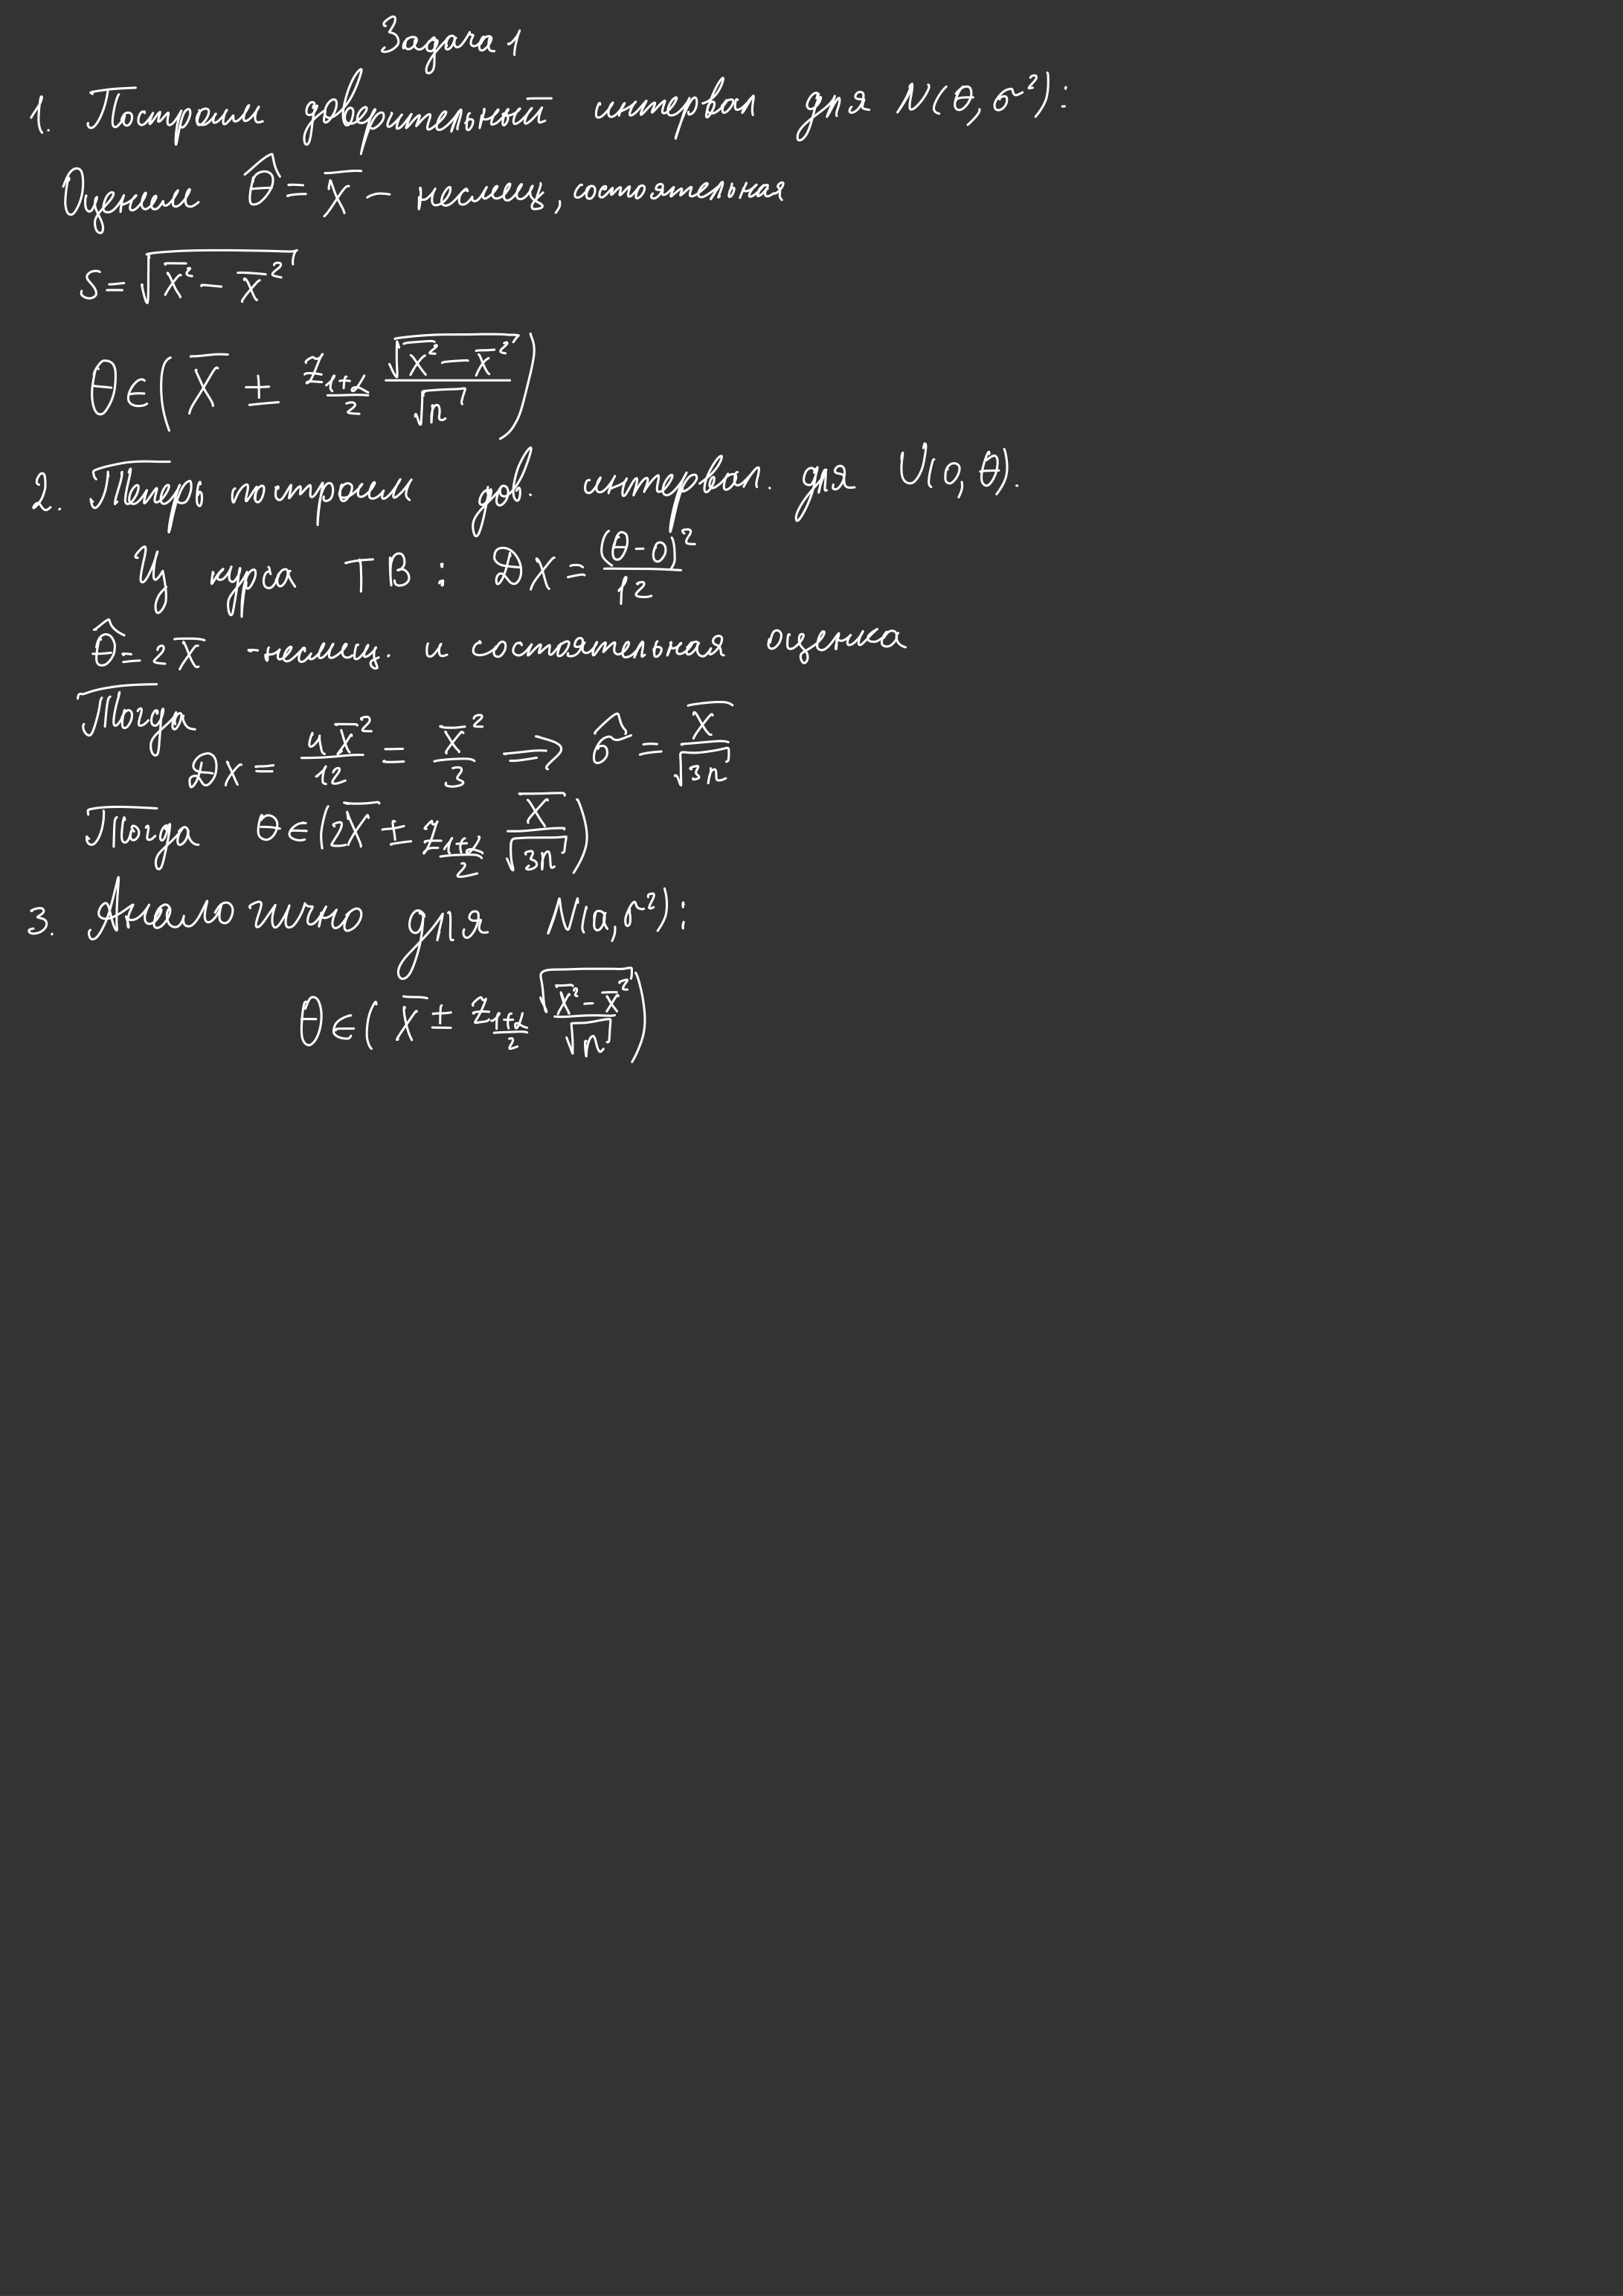 Задача 1
1. Построим доверительный интервал для N(θ, σ²):
Оценим θ̂ = X̅ – несмещ, состоятельная
S = √(x̅² − x̅²)
θ ∈ (X̅ ± z_{(1+α)/2} √(x̅² − x̅²)/√n)
2. Теперь построим дов. интервал. для U(0, θ).
Из курса ТВ: DX = (θ−0)²/12
θ̂ = 2X̅ – несмещ. и состоятельная оценка
Тогда
DX = 4X̅²/12 = X̅²/3 => σ̂ = X̅/√(3n)
Тогда θ ∈ (2X̅ ± z_{(1+α)/2} X̅/√(3n))
3. Аналогично для N(a, σ²):
θ ∈ (X̅ ± z_{(1+α)/2} √(x̅² − x̅²)/√n)